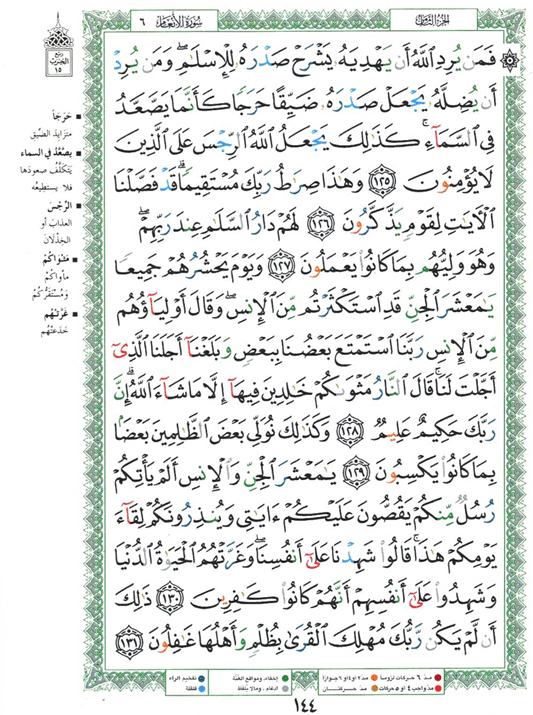 الجزء الثامن
سورة الأنعام ٦
ربع
الحزب
١٥
فَمَن يُرِدِ ٱللَّهُ أَن يَهْدِيَهُۥ يَشْرَحْ صَدْرَهُۥ لِلْإِسْلَٰمِ ۖ وَمَن يُرِدْ
أَن يُضِلَّهُۥ يَجْعَلْ صَدْرَهُۥ ضَيِّقًا حَرَجًا كَأَنَّمَا يَصَّعَّدُ
فِى ٱلسَّمَآءِ ۚ كَذَٰلِكَ يَجْعَلُ ٱللَّهُ ٱلرِّجْسَ عَلَى ٱلَّذِينَ
لَا يُؤْمِنُونَ ١٢٥ وَهَٰذَا صِرَٰطُ رَبِّكَ مُسْتَقِيمًا ۗ قَدْ فَصَّلْنَا
ٱلْءَايَٰتِ لِقَوْمٍ يَذَّكَّرُونَ ١٢٦ لَهُمْ دَارُ ٱلسَّلَٰمِ عِندَ رَبِّهِمْ ۖ
وَهُوَ وَلِيُّهُم بِمَا كَانُوا۟ يَعْمَلُونَ ١٢٧ وَيَوْمَ يَحْشُرُهُمْ جَمِيعًا
يَٰمَعْشَرَ ٱلْجِنِّ قَدِ ٱسْتَكْثَرْتُم مِّنَ ٱلْإِنسِ ۖ وَقَالَ أَوْلِيَآؤُهُم
مِّنَ ٱلْإِنسِ رَبَّنَا ٱسْتَمْتَعَ بَعْضُنَا بِبَعْضٍ وَبَلَغْنَآ أَجَلَنَا ٱلَّذِىٓ
أَجَّلْتَ لَنَا ۚ قَالَ ٱلنَّارُ مَثْوَىٰكُمْ خَٰلِدِينَ فِيهَآ إِلَّا مَا شَآءَ ٱللَّهُ ۗ إِنَّ
رَبَّكَ حَكِيمٌ عَلِيمٌ ١٢٨ وَكَذَٰلِكَ نُوَلِّى بَعْضَ ٱلظَّٰلِمِينَ بَعْضًۢا
بِمَا كَانُوا۟ يَكْسِبُونَ ١٢٩ يَٰمَعْشَرَ ٱلْجِنِّ وَٱلْإِنسِ أَلَمْ يَأْتِكُمْ
رُسُلٌ مِّنكُمْ يَقُصُّونَ عَلَيْكُمْ ءَايَٰتِى وَيُنذِرُونَكُمْ لِقَآءَ
يَوْمِكُمْ هَٰذَا ۚ قَالُوا۟ شَهِدْنَا عَلَىٰٓ أَنفُسِنَا ۖ وَغَرَّتْهُمُ ٱلْحَيَوٰةُ ٱلدُّنْيَا
وَشَهِدُوا۟ عَلَىٰٓ أَنفُسِهِمْ أَنَّهُمْ كَانُوا۟ كَٰفِرِينَ ١٣٠ ذَٰلِكَ
أَن لَّمْ يَكُن رَّبُّكَ مُهْلِكَ ٱلْقُرَىٰ بِظُلْمٍ وَأَهْلُهَا غَٰفِلُونَ ١٣١
حَرَجًا
متزايد الضّيق
يصّعّد في السماء
يتكلّف صعودها
فلا يستطيعُه
الرِّجْسَ
العذابَ أو
الخِذْلانَ
مَثْوَاكُمْ
مأواكُمْ
ومُسْتَقَرُّكُمْ
غَرَّتْهُم
خَدَعَتْهُم
مدّ ٦ حركات لزوماً
مدّ ٢ أو ٤ أو ٦ جوازاً
إخفاء، ومواقع الغُنَّة
تفخيم الراء
مدّ واجب ٤ أو ٥ حركات
مدّ حركتان
ادغام، وما لا يُلفَظ
قلقلة
١٤٤